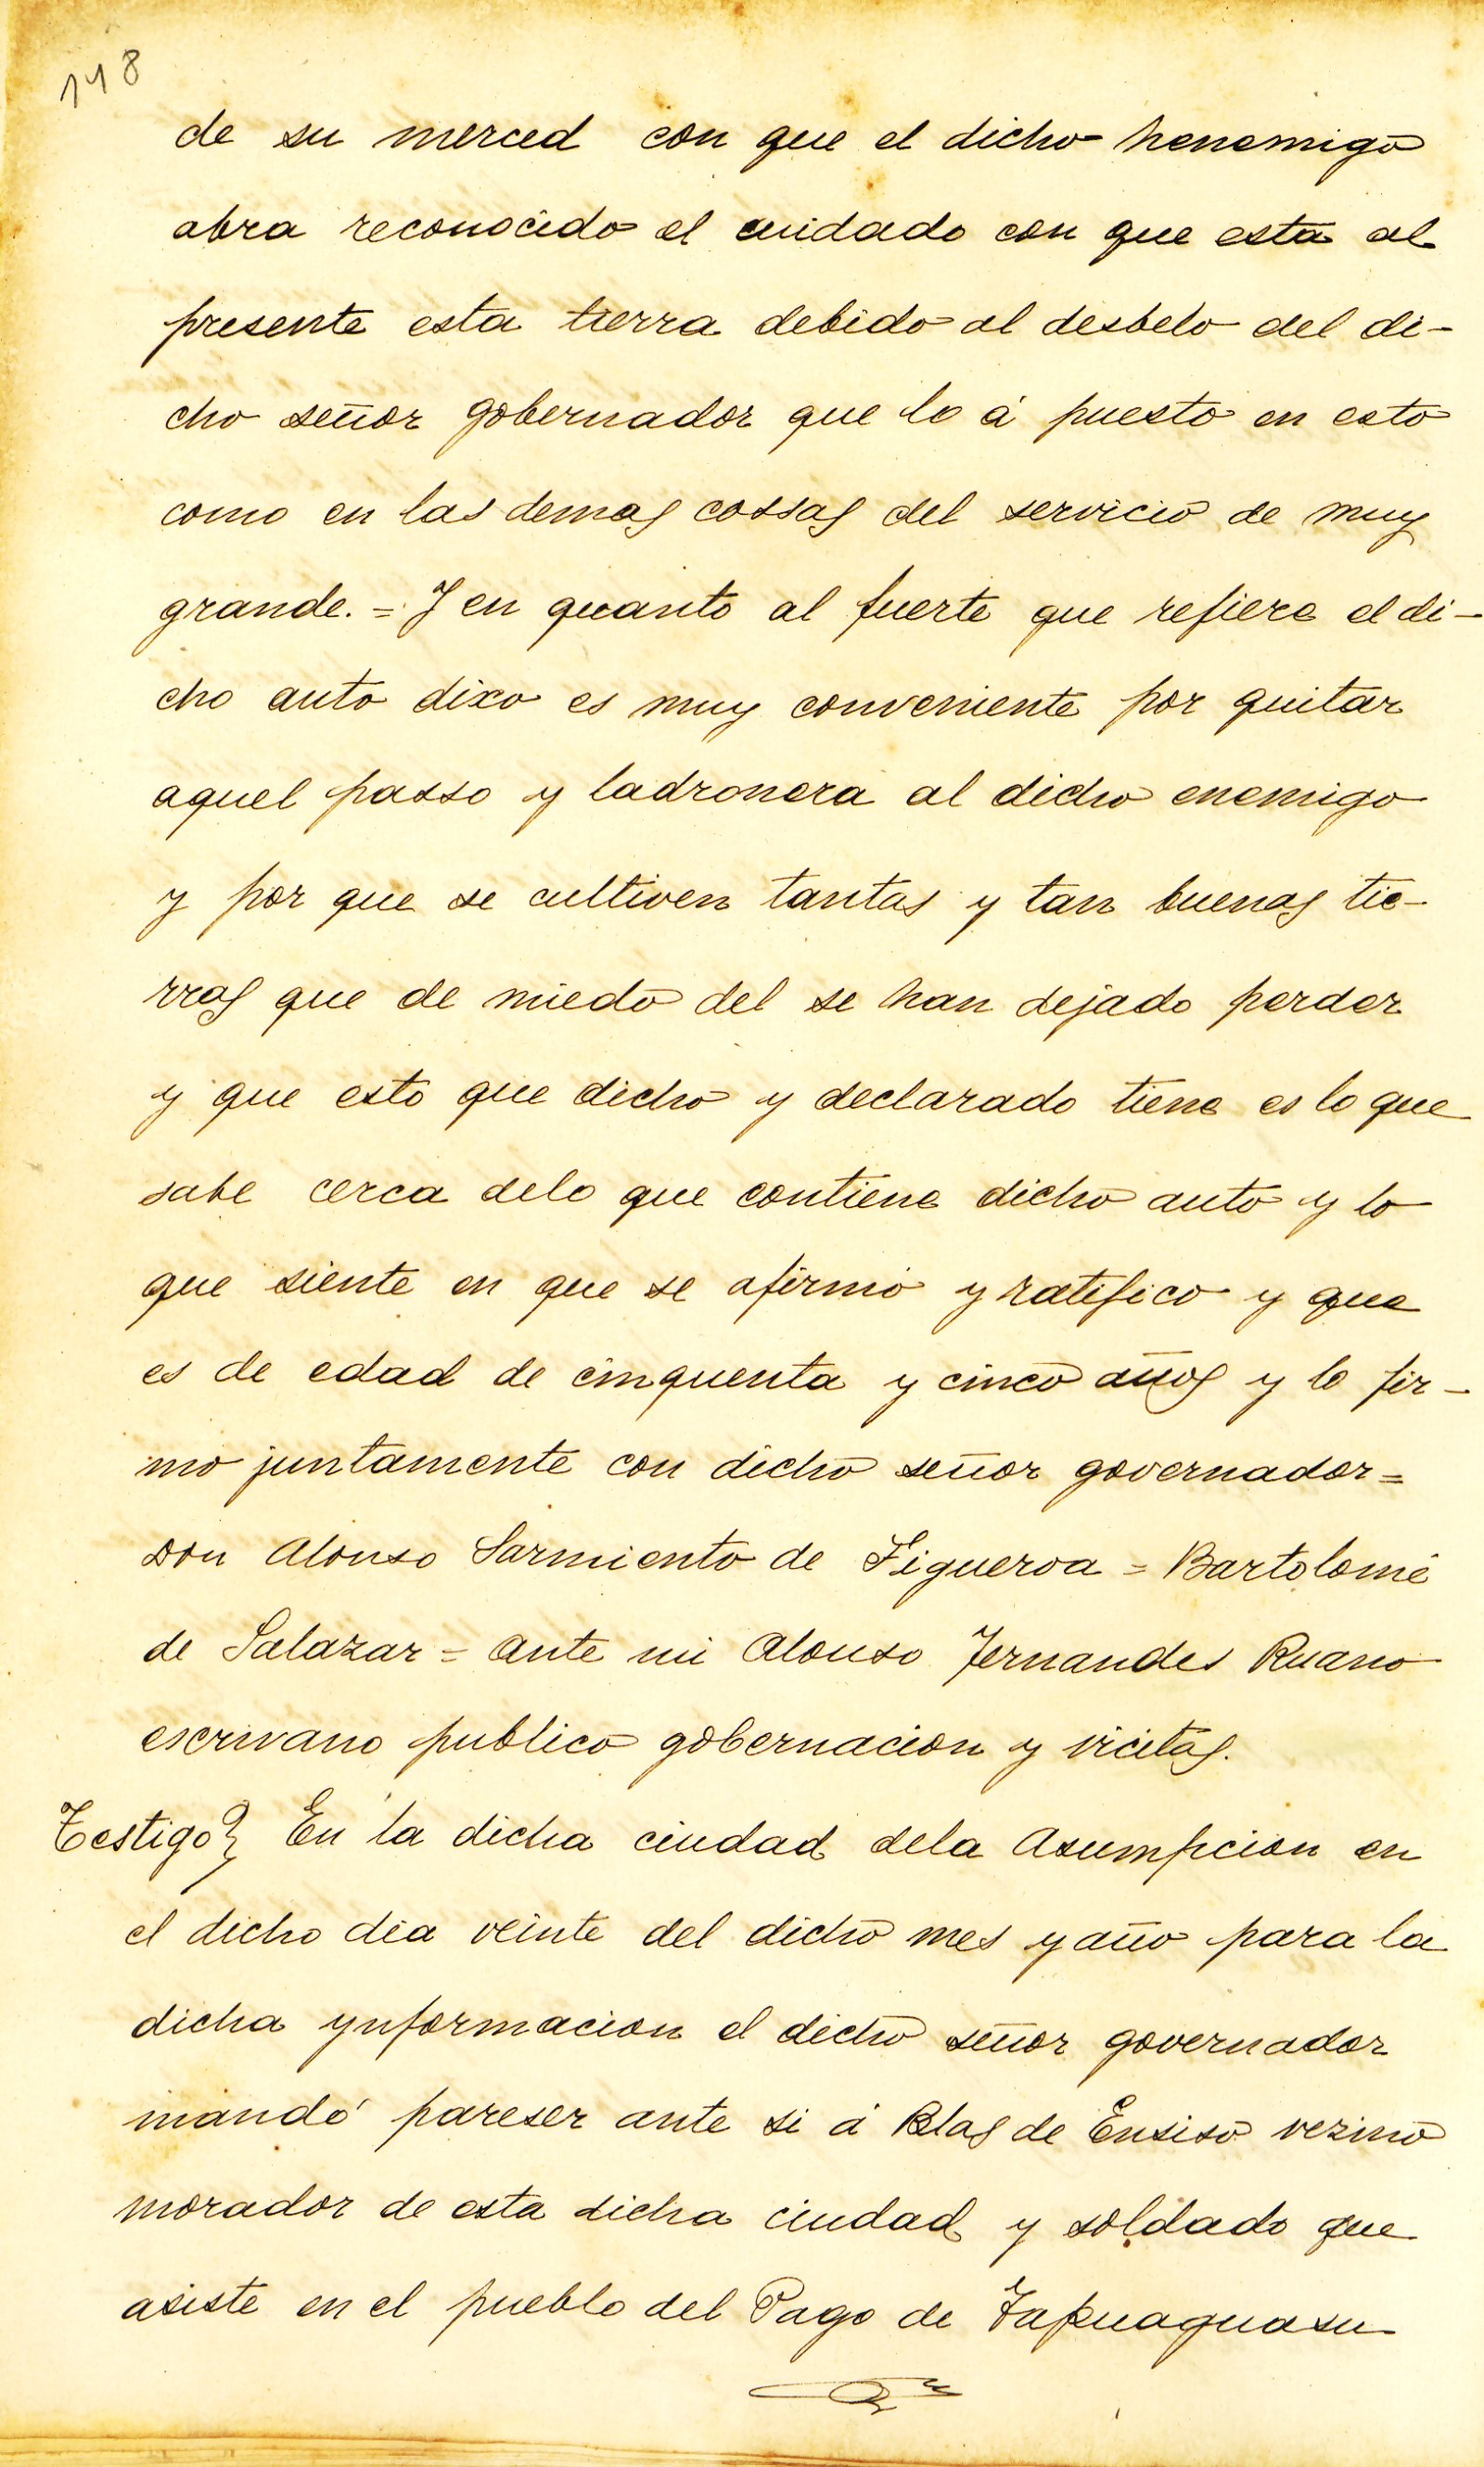 148
de su merced con que el dicho henemigo
abra reconocido el cuidado con que esta al
presente esta tierra debido al desbelo del di-
cho señor gobernador que lo á puesto en esto
como en las demas cossas del servicio de muy
grande. = Y en quanto al fuerte que refiere el di-
cho auto dixo es muy conveniente por quitar
aquel passo y ladronera al dicho enemigo
y por que se cultiven tantas y tan buenas tie-
rras que de miedo del se han dejado perder
y que esto que dicho y declarado tiene es lo que
sabe cerca delo que contiene dicho auto y lo
que siente en que se afirmo y ratifico y que
es de edad de cinquenta y cinco años y lo fir-
mo juntamente con dicho señor governador =
Don Alonso Sarmiento de Figueroa = Bartolomé
de Salazar = Ante mi Alonso Fernandes Ruano
escrivano publico gobernacion y vicitas.
Testigo} En la dicha ciudad dela Asumpcion en
el dicho dia veinte del dicho mes y año para la
dicha ynformacion el dicho señor governador
mandó pareser ante si á Blas de Ensiso vezino
morador de esta dicha ciudad y soldado que
asiste en el pueblo del Pago de Tapuaguasu